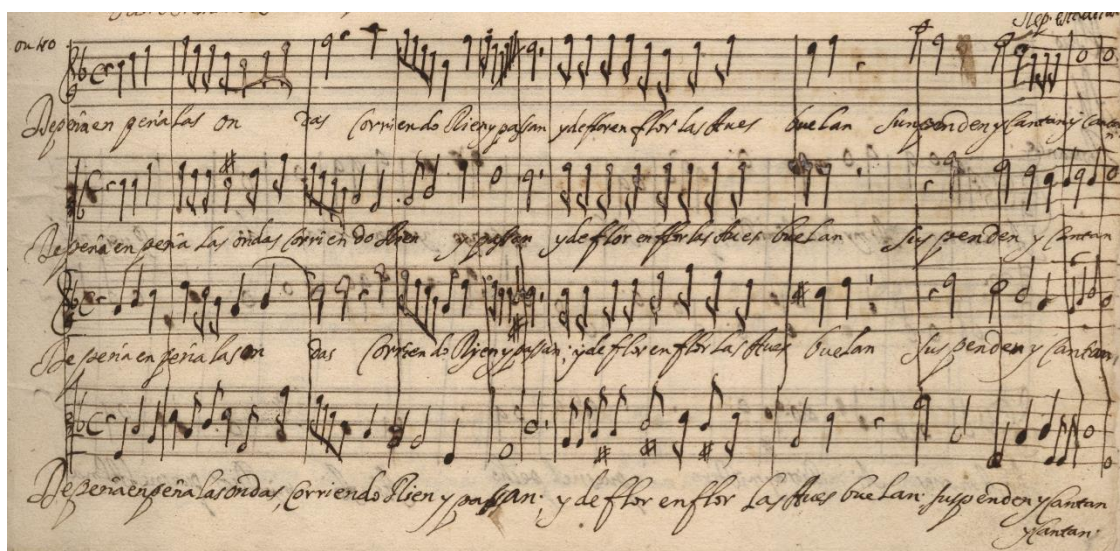 De peña en peña las on das Corriendo Rien y passan y de flor en flor las Aues buelan Suspenden y Cantan y Cantan
De peña en peña las ondas Corriendo Rien y passan y de flor en flor las Aues buelan Suspenden y Cantan
De peña en peña las on das Corriendo Rien y passan; y de flor en flor las Aues buelan Suspenden y Cantan
De peña en peña las ondas, Corriendo Rien y passan; y de flor en flor las Aues buelan; suspenden y Cantan
y Cantan.